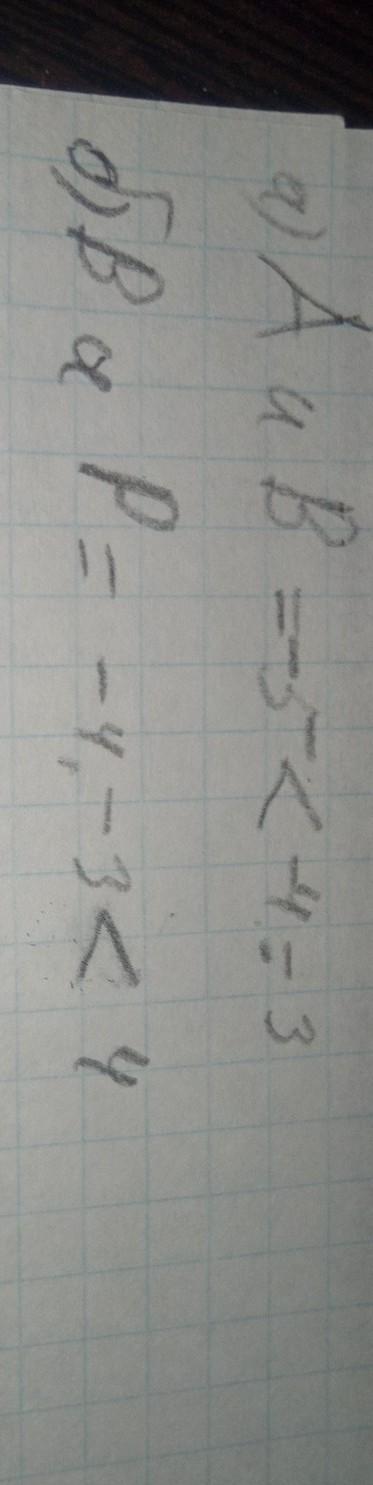 а) А и В = -5 < -4; -3
б) В и Р = -4; -3 < 4